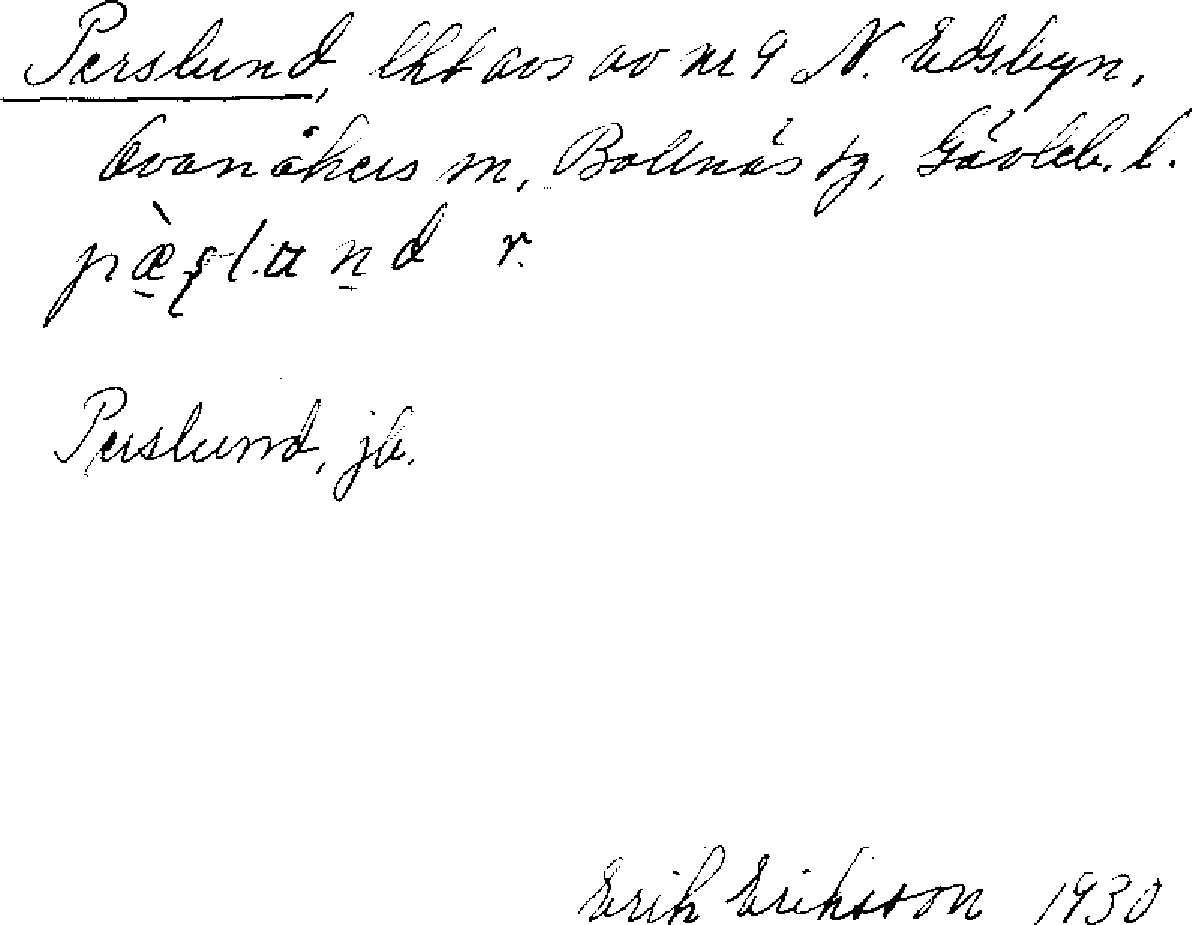 Perslund, lht avs av nr 9 N. Edsbyn,
Ovanåkers sn, Bollnäs tg, Gävleb. l.
Perslund, jb.
Erik Eriksson 1930